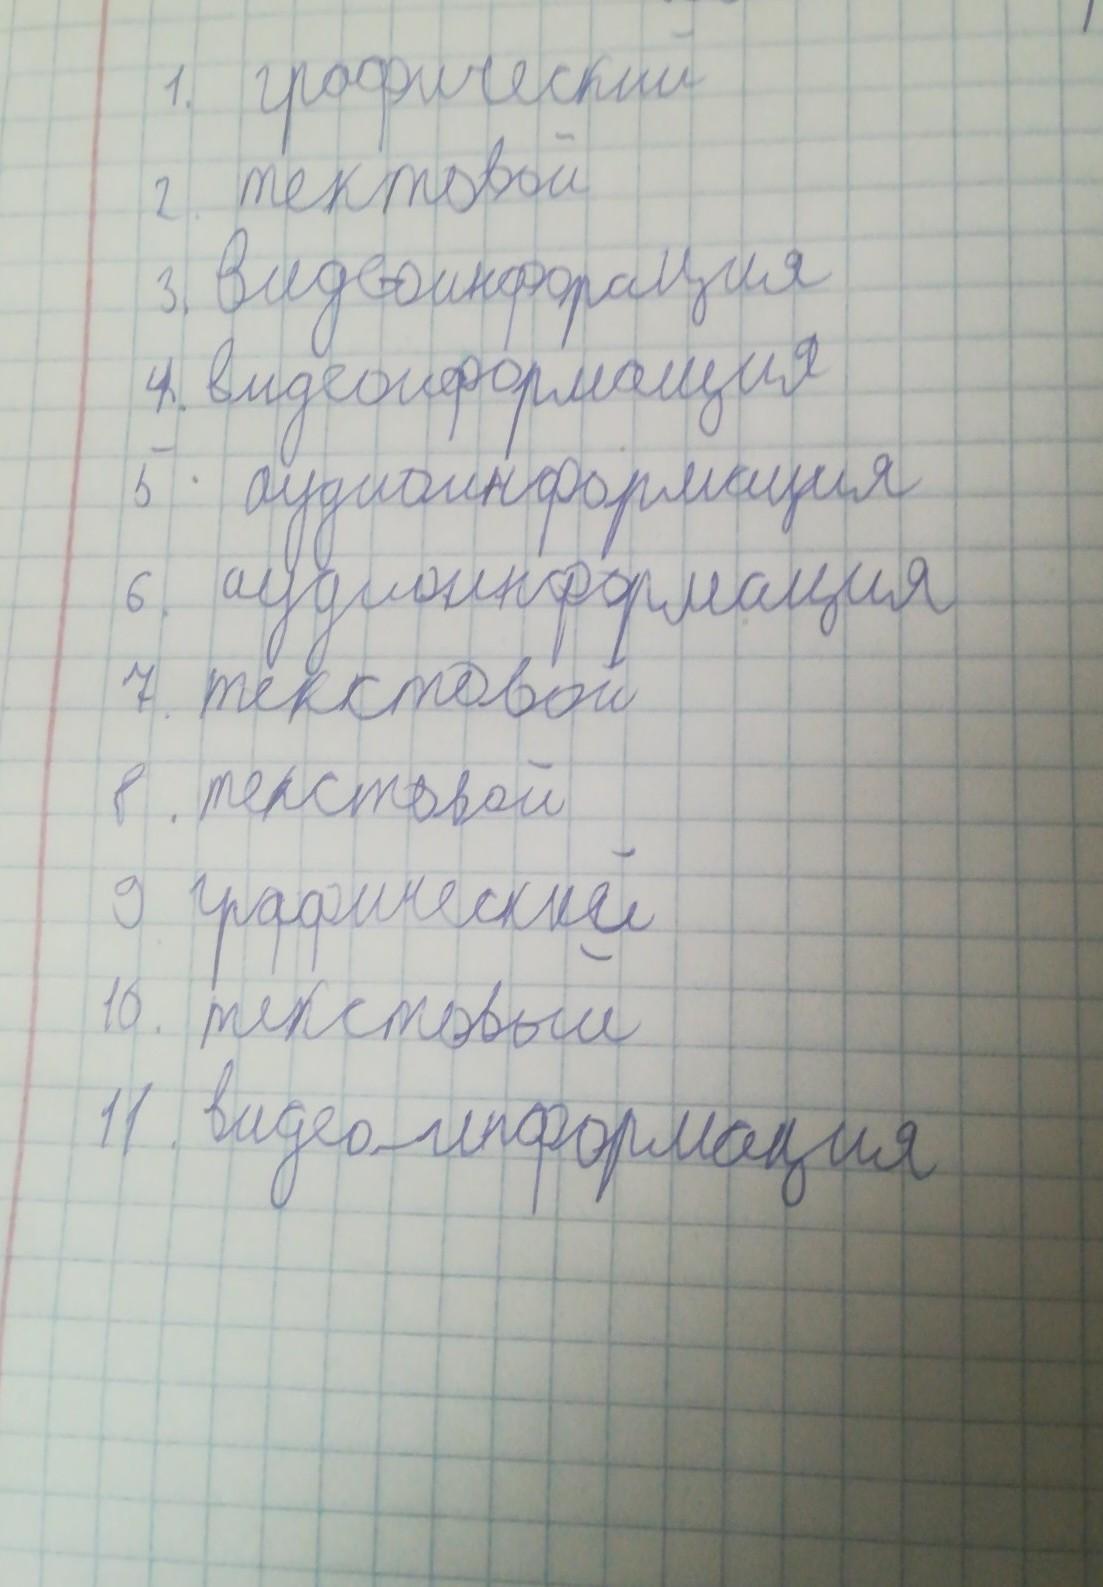 1. графический
2. тектовой
3. Видеоинфорация
4. видеоиформация
5. аудиоинформация
6. аудиоинформация
7. текстовой
8. текстовой
9 графический
10. текстовый
11. видео-информация